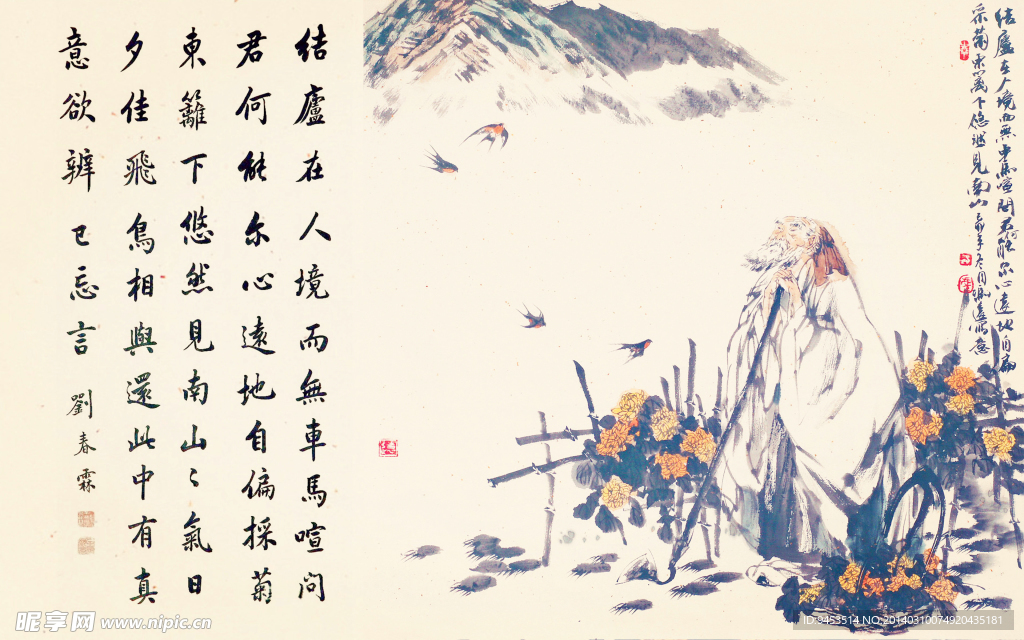 結廬在人境而無車馬喧问
君何能尔心遠地自偏採菊
東籬下悠然見南山々氣日
夕佳飛鳥相與還此中有真
意欲辨已忘言 劉春霖
结廬在人境而無車馬喧問君何能尔心遠地自扁
采菊東篱下悠然見南山
昵享网 www.nipic.cn
ID:9453514 NO:20140310074920435181